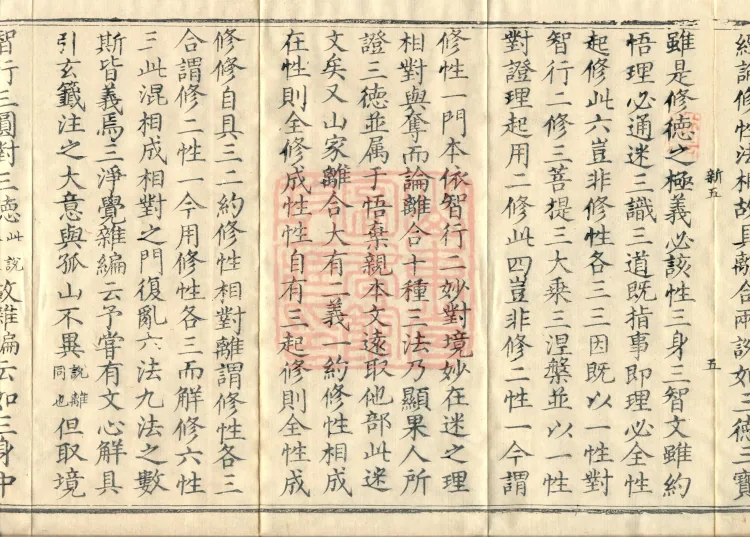 經論修性法相故具離合兩說如三德三寶
新五
五
雖是修德之極義必該性三身三智文雖約
悟理必通迷三識三道既指事即理必全性
起修此六豈非修性各三三因既以一性對
智行二修三菩提三大乘三涅槃並以一性
對證理起用二修此四豈非修二性一今謂
修性一門本依智行二妙對境妙在迷之理
相對與奪而論離合十種三法乃顯果人所
證三德並属于悟棄親本文遠取他部此迷
文矣又山家離合大有二義一約修性相成
在性則全修成性性自有三起修則全性成
修修自具三二約修性相對離謂修性各三
合謂修二性一今用修性各三而解修六性
三此混相成相對之門復亂六法九法之數
斯皆義焉三淨覺雜編云予嘗有文心解具
引玄籤注之大意與孤山不異說離同也但取境
智行三圓對三德此說故雜編云如三身中